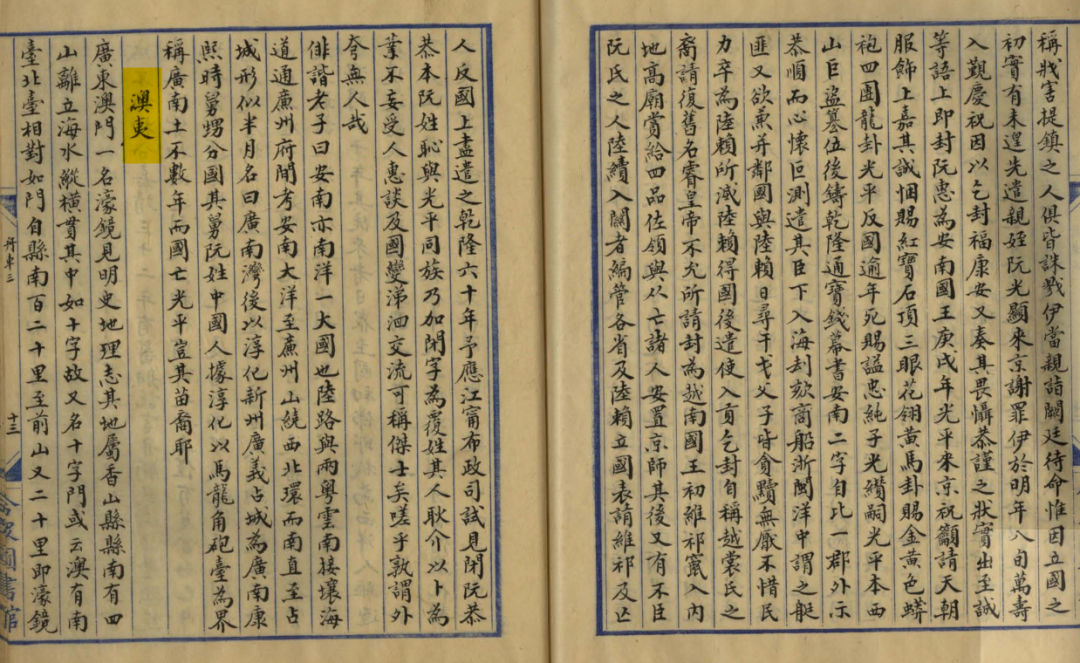 稱戕害提鎮之人俱皆誅戮伊當親詣闕廷待命惟因立國之
初實有未遑先遣親姪阮光顯來京謝罪伊於明年八旬萬壽
入覲慶祝因以乞封福康安又奏其畏懾恭謹之狀實出至誠
等語上即封阮惠為安南國王庚戌年光平來京祝籲請天朝
服飾上嘉其誠悃賜紅寶石頂三眼花翎黃馬卦賜金黃色蟒
袍四團龍卦光平反國逾年死賜謚忠純子光纘嗣光平本西
山巨盜篡位後鑄乾隆通寶錢幕書安南二字自比一郡外示
恭順而心懷叵測遣其臣下入海刦欬商船浙閩洋中謂之艇
匪又欲兼并鄰國與陸賴日尋干戈父子皆貪黷無厭不惜民
力卒為陸賴所滅陸賴得國後遣使入貢乞封自稱越裳氏之
裔請復舊名睿皇帝不允所請封為越南國王初維祁竄入內
地高廟賞給四品佐領與从亡諸人安置京師其後又有不臣
阮氏之人陸續入關者編管各省及陸賴立國表請維祁及亡
人反國上盡遣之乾隆六十年予應江甯布政司試見閉阮恭
恭本阮姓恥與光平同族乃加閉字為覆姓其人耿介以卜為
業不妄受人惠談及國變涕泗交流可稱傑士矣嗟乎孰謂外
夸無人哉
俳諧老子曰安南亦南洋一大國也陸路與兩粵雲南接壤海
道通廉州府閒考安南大洋至廉州山繞西北環而南直至占
城形似半月名曰廣南灣後以淳化新州廣義占城為廣南康
熙時舅甥分國其舅阮姓中國人據淳化以馬龍角砲臺為界
稱廣南土不數年而國亡光平豈其苗裔耶
澳夷
廣東澳門一名濠鏡見明史地理志其地屬香山縣縣南有四
山離立海水縱橫貫其中如十字故又名十字門或云澳有南
臺北臺相對如門自縣南百二十里至前山又二十里即濠鏡
舟車三
十三
圖書館